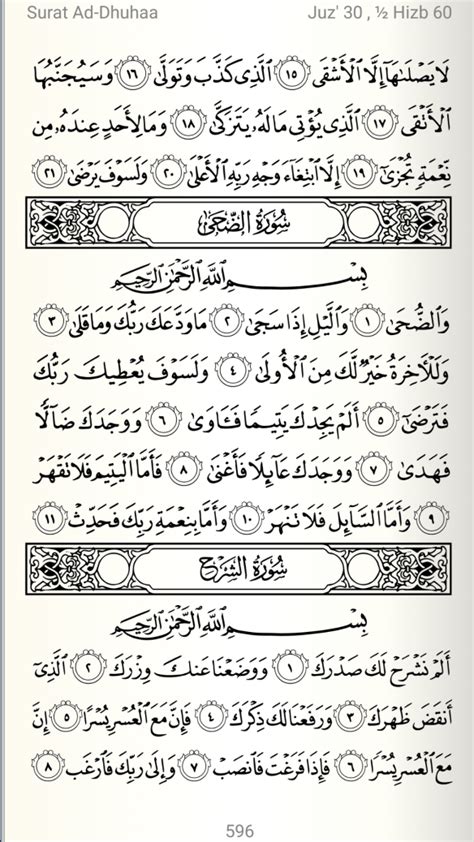 Surat Ad-Dhuhaa Juz' 30 , ½ Hizb 60
لَا يَصْلَىٰهَآ إِلَّا ٱلْأَشْقَى ١٥ ٱلَّذِى كَذَّبَ وَتَوَلَّىٰ ١٦ وَسَيُجَنَّبُهَا
ٱلْأَتْقَى ١٧ ٱلَّذِى يُؤْتِى مَالَهُۥ يَتَزَكَّىٰ ١٨ وَمَا لِأَحَدٍ عِندَهُۥ مِن
نِّعْمَةٍ تُجْزَىٰٓ ١٩ إِلَّا ٱبْتِغَآءَ وَجْهِ رَبِّهِ ٱلْأَعْلَىٰ ٢٠ وَلَسَوْفَ يَرْضَىٰ ٢١
سُورَةُ الضُّحَىٰ
بِسْمِ ٱللَّهِ ٱلرَّحْمَٰنِ ٱلرَّحِيمِ
وَٱلضُّحَىٰ ١ وَٱلَّيْلِ إِذَا سَجَىٰ ٢ مَا وَدَّعَكَ رَبُّكَ وَمَا قَلَىٰ ٣
وَلَلْءَاخِرَةُ خَيْرٌ لَّكَ مِنَ ٱلْأُولَىٰ ٤ وَلَسَوْفَ يُعْطِيكَ رَبُّكَ
فَتَرْضَىٰٓ ٥ أَلَمْ يَجِدْكَ يَتِيمًا فَـَٔاوَىٰ ٦ وَوَجَدَكَ ضَآلًّا
فَهَدَىٰ ٧ وَوَجَدَكَ عَآئِلًا فَأَغْنَىٰ ٨ فَأَمَّا ٱلْيَتِيمَ فَلَا تَقْهَرْ
٩ وَأَمَّا ٱلسَّآئِلَ فَلَا تَنْهَرْ ١٠ وَأَمَّا بِنِعْمَةِ رَبِّكَ فَحَدِّثْ ١١
سُورَةُ الشَّرْحِ
بِسْمِ ٱللَّهِ ٱلرَّحْمَٰنِ ٱلرَّحِيمِ
أَلَمْ نَشْرَحْ لَكَ صَدْرَكَ ١ وَوَضَعْنَا عَنكَ وِزْرَكَ ٢ ٱلَّذِىٓ
أَنقَضَ ظَهْرَكَ ٣ وَرَفَعْنَا لَكَ ذِكْرَكَ ٤ فَإِنَّ مَعَ ٱلْعُسْرِ يُسْرًا ٥ إِنَّ
مَعَ ٱلْعُسْرِ يُسْرًا ٦ فَإِذَا فَرَغْتَ فَٱنصَبْ ٧ وَإِلَىٰ رَبِّكَ فَٱرْغَب ٨
596